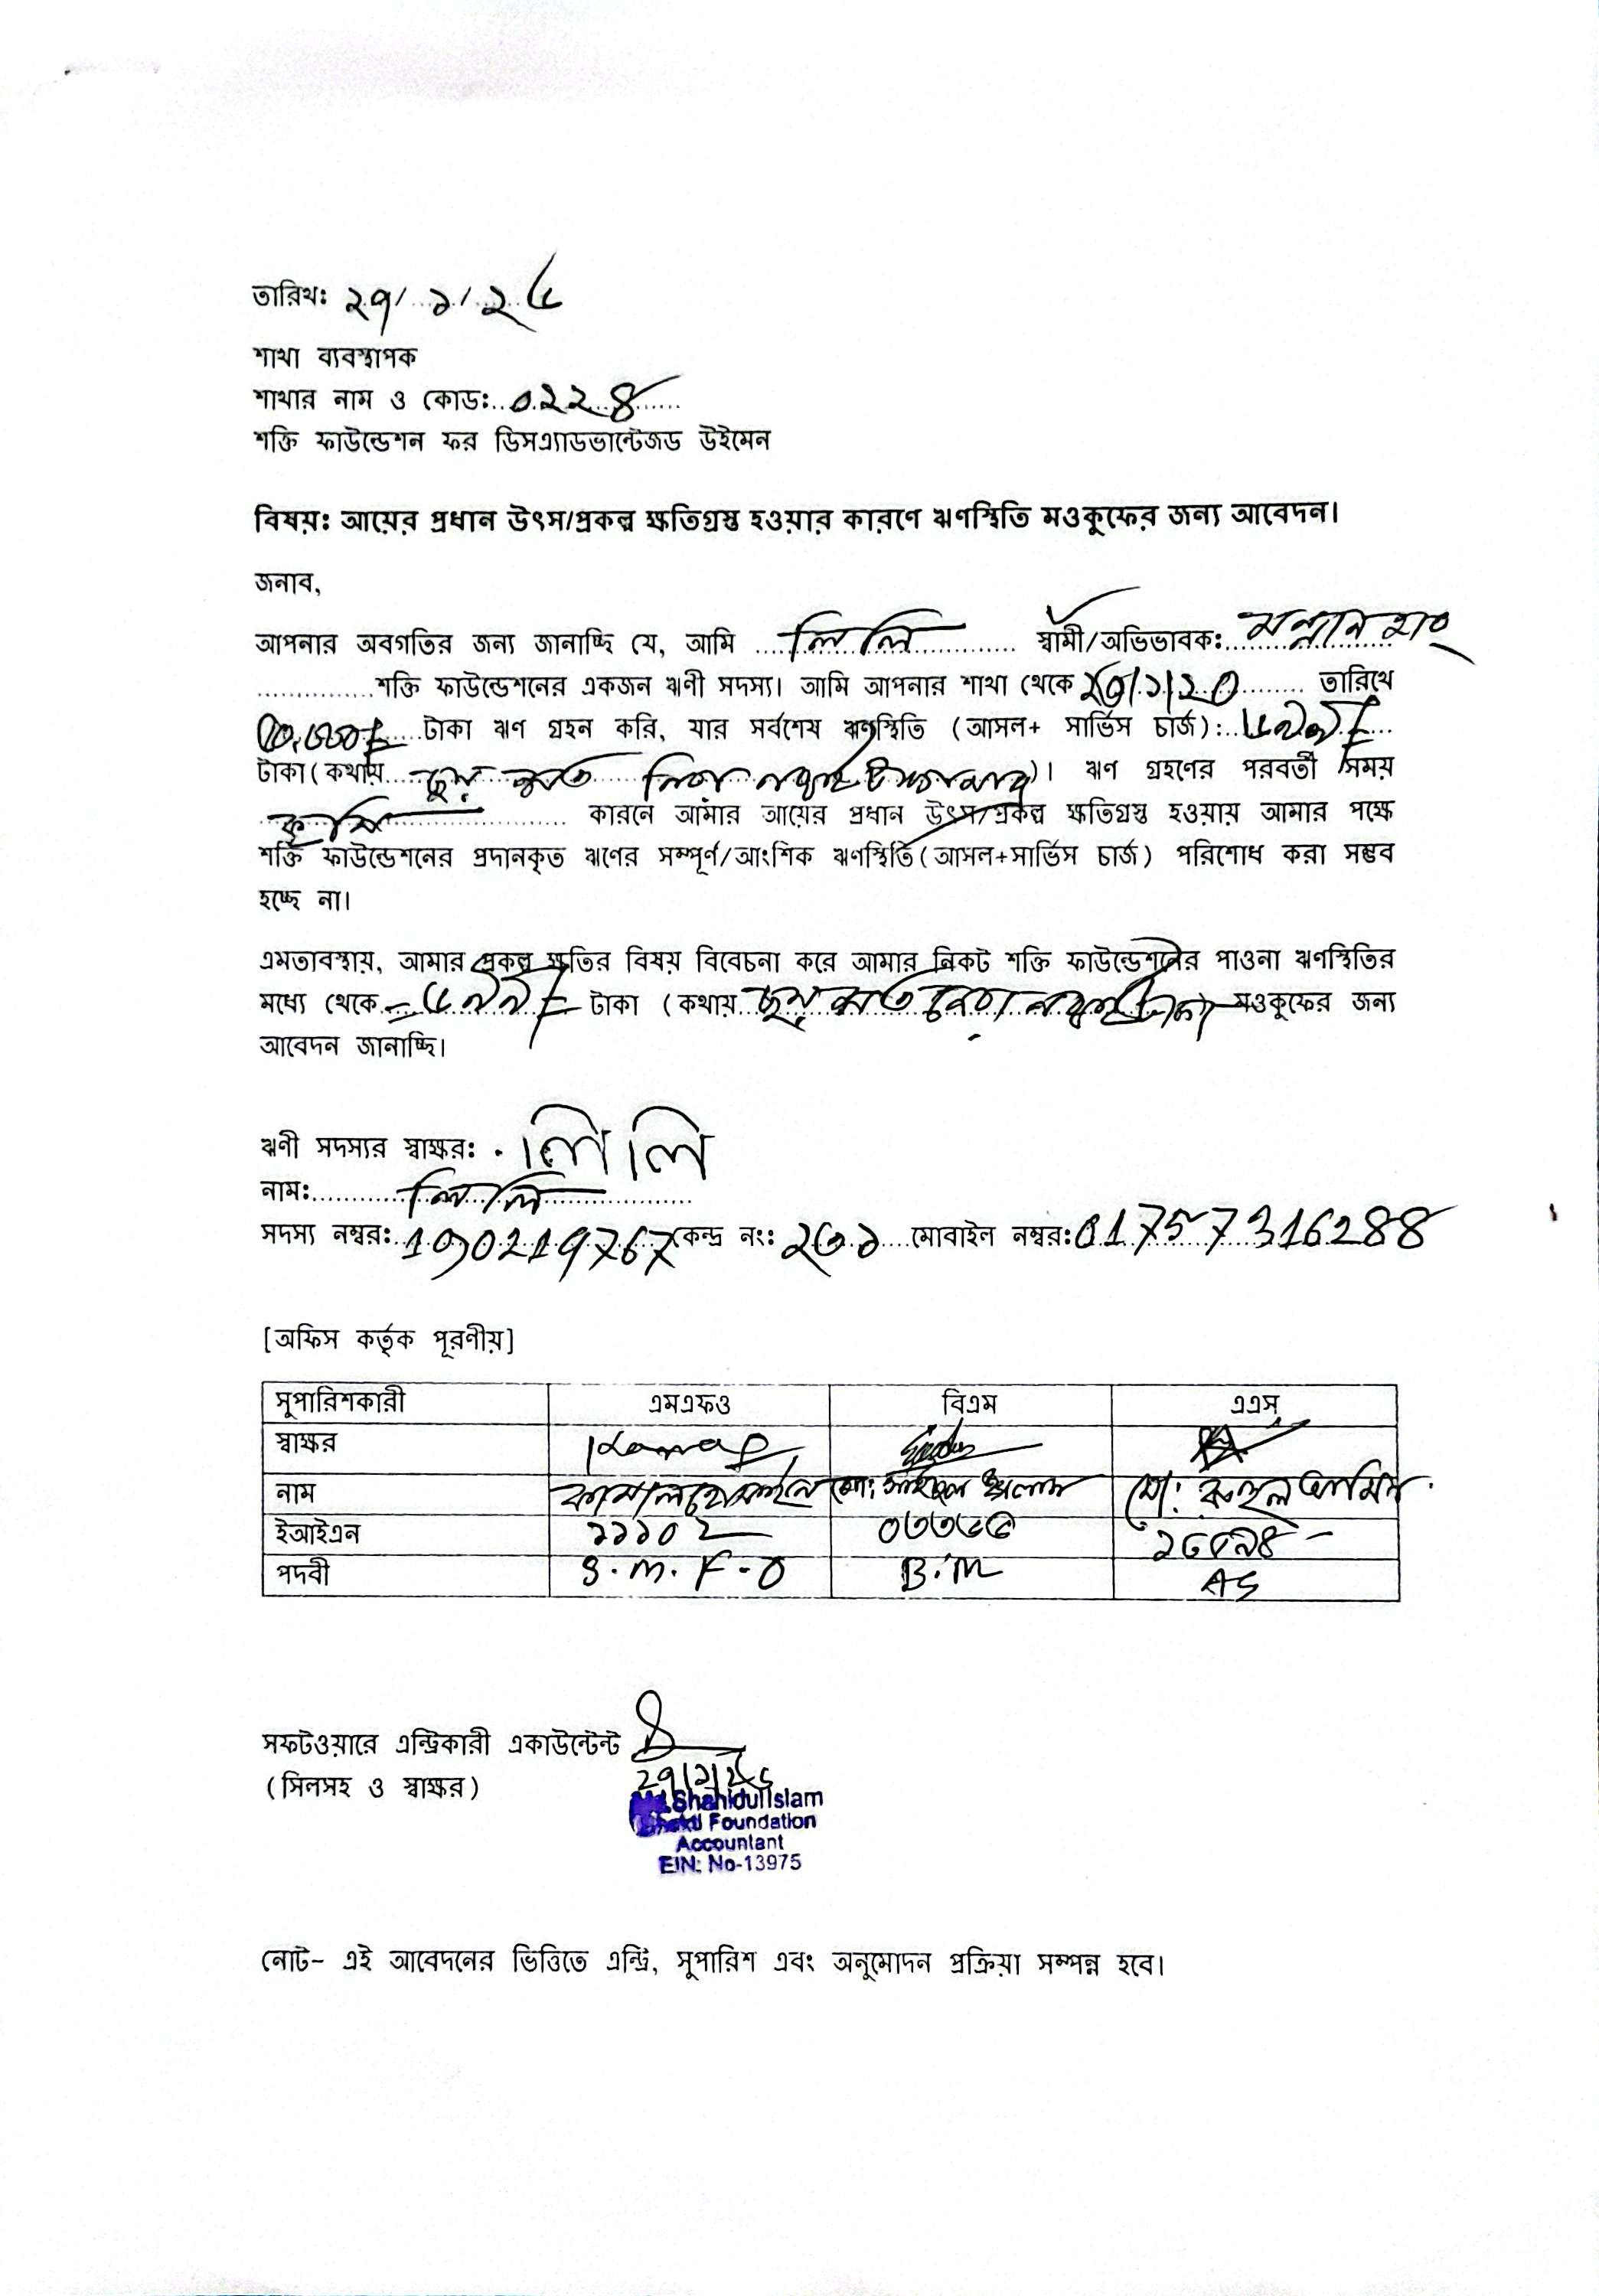 তারিখ: ২৭/১/২৬
শাখা ব্যবস্থাপক
শাখার নাম ও কোড: ০২২৪
শক্তি ফাউন্ডেশন ফর ডিসএ্যাডভান্টেজড উইমেন
বিষয়: আয়ের প্রধান উৎস/প্রকল্প ক্ষতিগ্রস্ত হওয়ার কারণে ঋণস্থিতি মওকুফের জন্য আবেদন।
জনাব,
আপনার অবগতির জন্য জানাচ্ছি যে, আমি লিলি স্বামী/অভিভাবক:
শক্তি ফাউন্ডেশনের একজন ঋণী সদস্য। আমি আপনার শাখা থেকে তারিখে
টাকা ঋণ গ্রহন করি, যার সর্বশেষ ঋণস্থিতি (আসল+ সার্ভিস চার্জ): ৬৯৯/-
টাকা (কথায় ছয় শত )। ঋণ গ্রহণের পরবর্তী সময়
কারনে আমার আয়ের প্রধান উৎস/প্রকল্প ক্ষতিগ্রস্ত হওয়ায় আমার পক্ষে
শক্তি ফাউন্ডেশনের প্রদানকৃত ঋণের সম্পূর্ণ/আংশিক ঋণস্থিতি (আসল+সার্ভিস চার্জ) পরিশোধ করা সম্ভব
হচ্ছে না।
এমতাবস্থায়, আমার প্রকল্প ক্ষতির বিষয় বিবেচনা করে আমার নিকট শক্তি ফাউন্ডেশনের পাওনা ঋণস্থিতির
মধ্যে থেকে = ৬৯৯/- টাকা (কথায় ছয় শত মওকুফের জন্য
আবেদন জানাচ্ছি।
ঋণী সদস্যর স্বাক্ষর: লিলি
নাম: লিলি
সদস্য নম্বর: কেন্দ্র নং: ২৩১ মোবাইল নম্বর: 01757316288
[অফিস কর্তৃক পূরণীয়]
সুপারিশকারী এমএফও বিএম এএস
স্বাক্ষর
নাম কামাল হোসাইন মো: মো: রুহুল আমিন
ইআইএন ১১১০২ ০৩৩৬৫
পদবী S.M.F.O B.M AS
সফটওয়ারে এন্ট্রিকারী একাউন্টেন্ট
(সিলসহ ও স্বাক্ষর) ২৭/১/২৬
Md. Shahidul Islam
Shakti Foundation
Accountant
EIN: No-13975
নোট- এই আবেদনের ভিত্তিতে এন্ট্রি, সুপারিশ এবং অনুমোদন প্রক্রিয়া সম্পন্ন হবে।